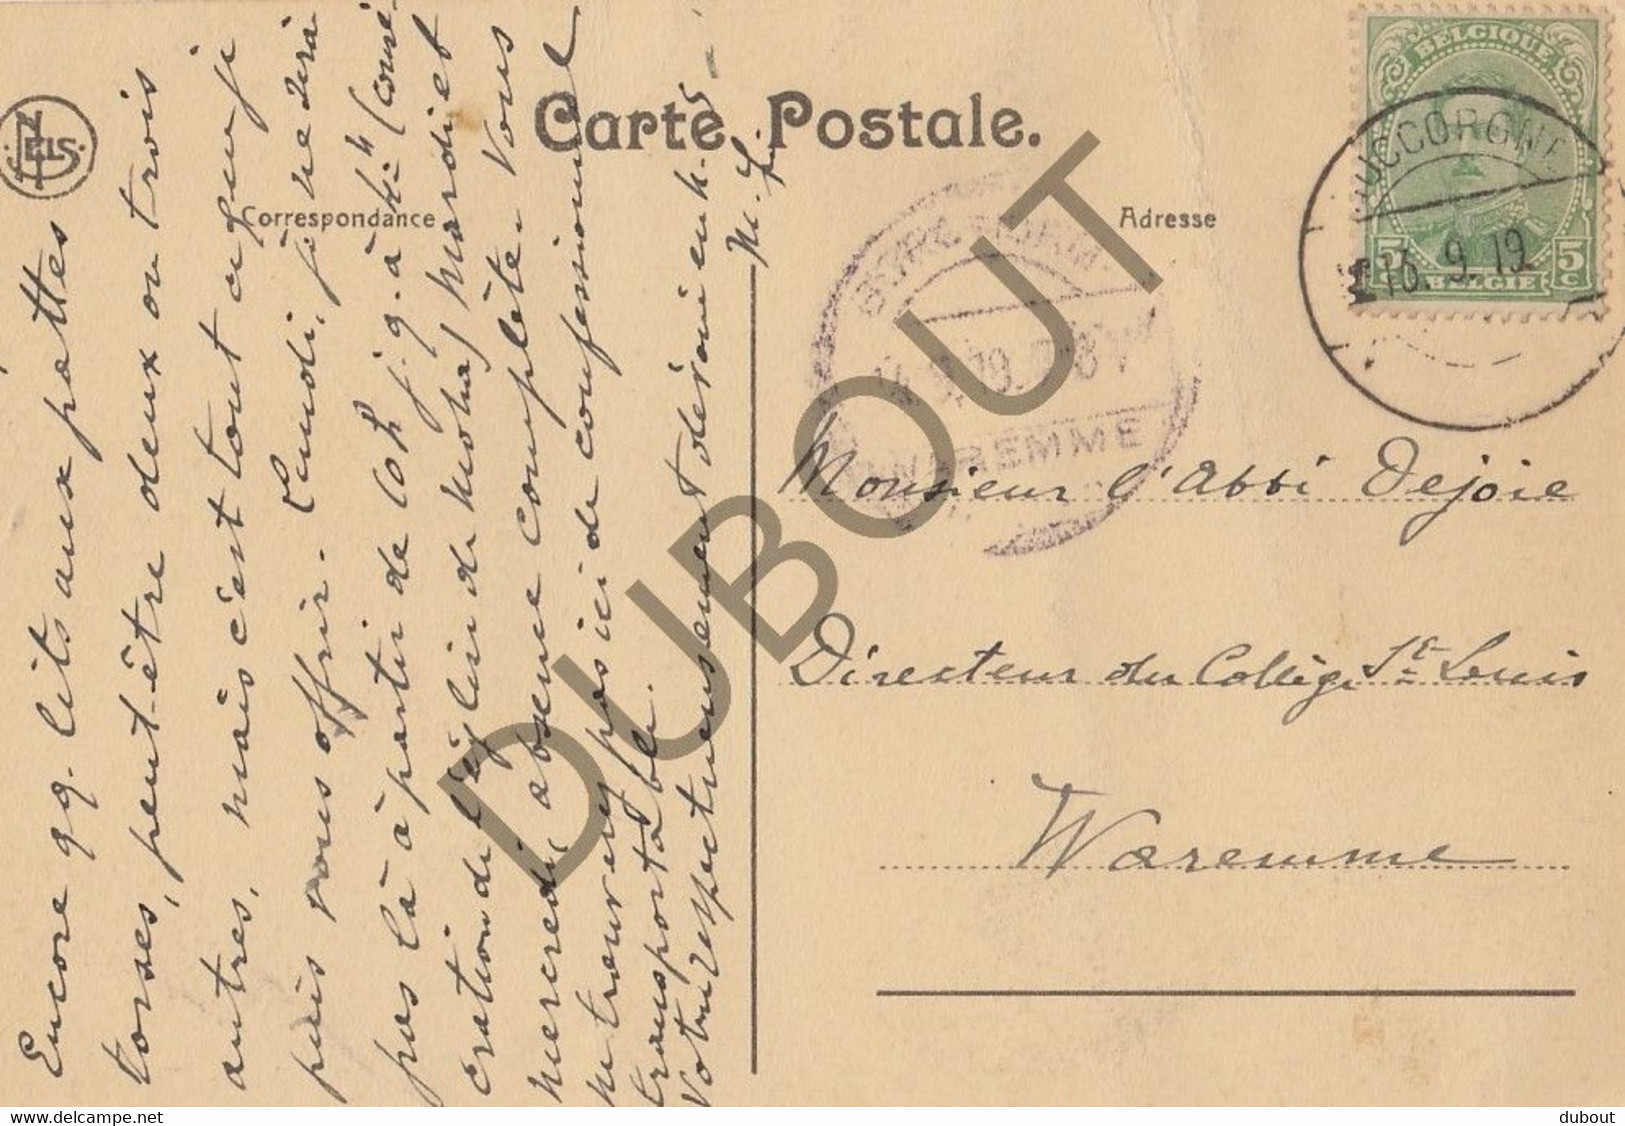 Carte Postale.
Correspondance
Adresse
NELS.
BELGIQUE
5 5
c c
BELGIE
HUCCORGNE
13. 9. 19
WAREMME
Monsieur l'Abbé Dejoie
Directeur du Collège St Louis
Waremme
Encore qq. lits aux pattes
torses, peut-être deux ou trois
autres, mais c'est tout ce que je
puis vous offrir. Lundi, je ne serai
pas là à partir de
mardi et
mercredi, absence complète. Vous
ne trouverez pas ici de confessionnal
transportable.
Votre respectueusement dévoué en
DUBOUT
www.delcampe.net
dubout